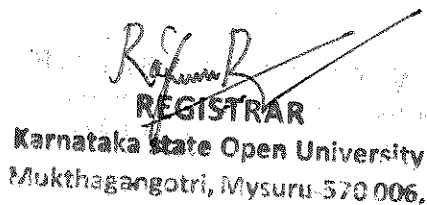 REGISTRAR
Karnataka State Open University
Mukthagangotri, Mysuru-570 006.